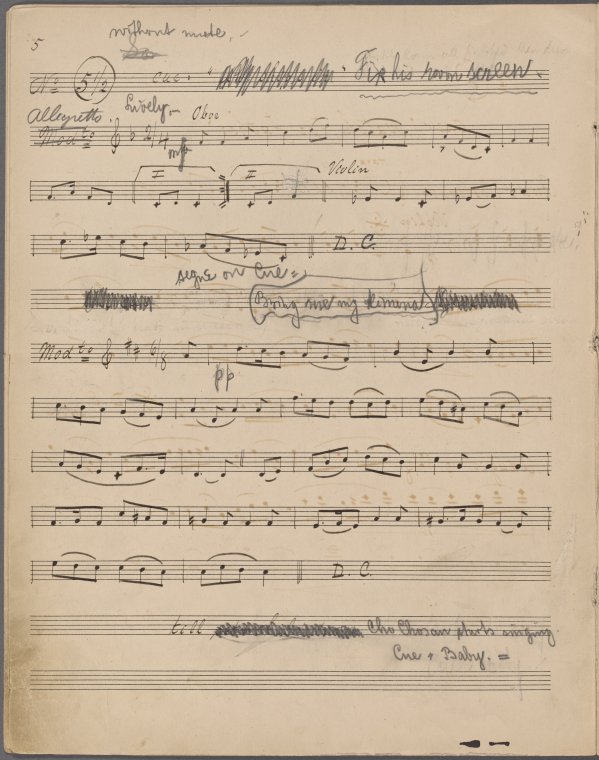 without mute.
5
No 5 1/2 Cue. " Fix his room screen.
Allegretto. Lively. Oboe
Modto 2/4
mf
II II Violin
D. C.
segue on Cue =
Bring me my Kimona
Modto 6/8
pp
D. C.
till Cho Chosan starts singing.
Cue " Baby. =